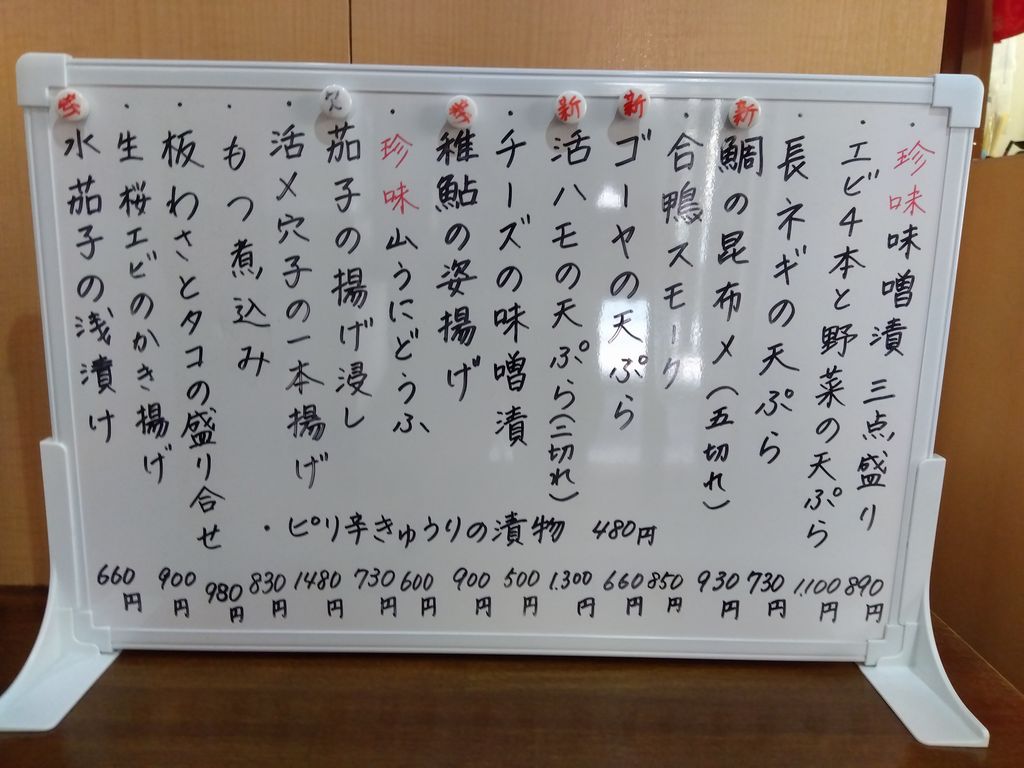 珍味 味噌漬 三点盛り 890円
・エビ4本と野菜の天ぷら 1.100円
・長ネギの天ぷら 730円
新 鯛の昆布〆(五切れ) 930円
・合鴨スモーク 850円
新 ゴーヤの天ぷら 660円
新 活ハモの天ぷら(二切れ) 1.300円
・チーズの味噌漬 500円
稚鮎の姿揚げ 900円
・珍味 山うにどうふ 600円
茄子の揚げ浸し 730円
・活〆穴子の一本揚げ 1480円
・もつ煮込み 830円
・板わさとタコの盛り合せ 980円
・生桜エビのかき揚げ 900円
水茄子の浅漬け 660円
・ピリ辛きゅうりの漬物 480円